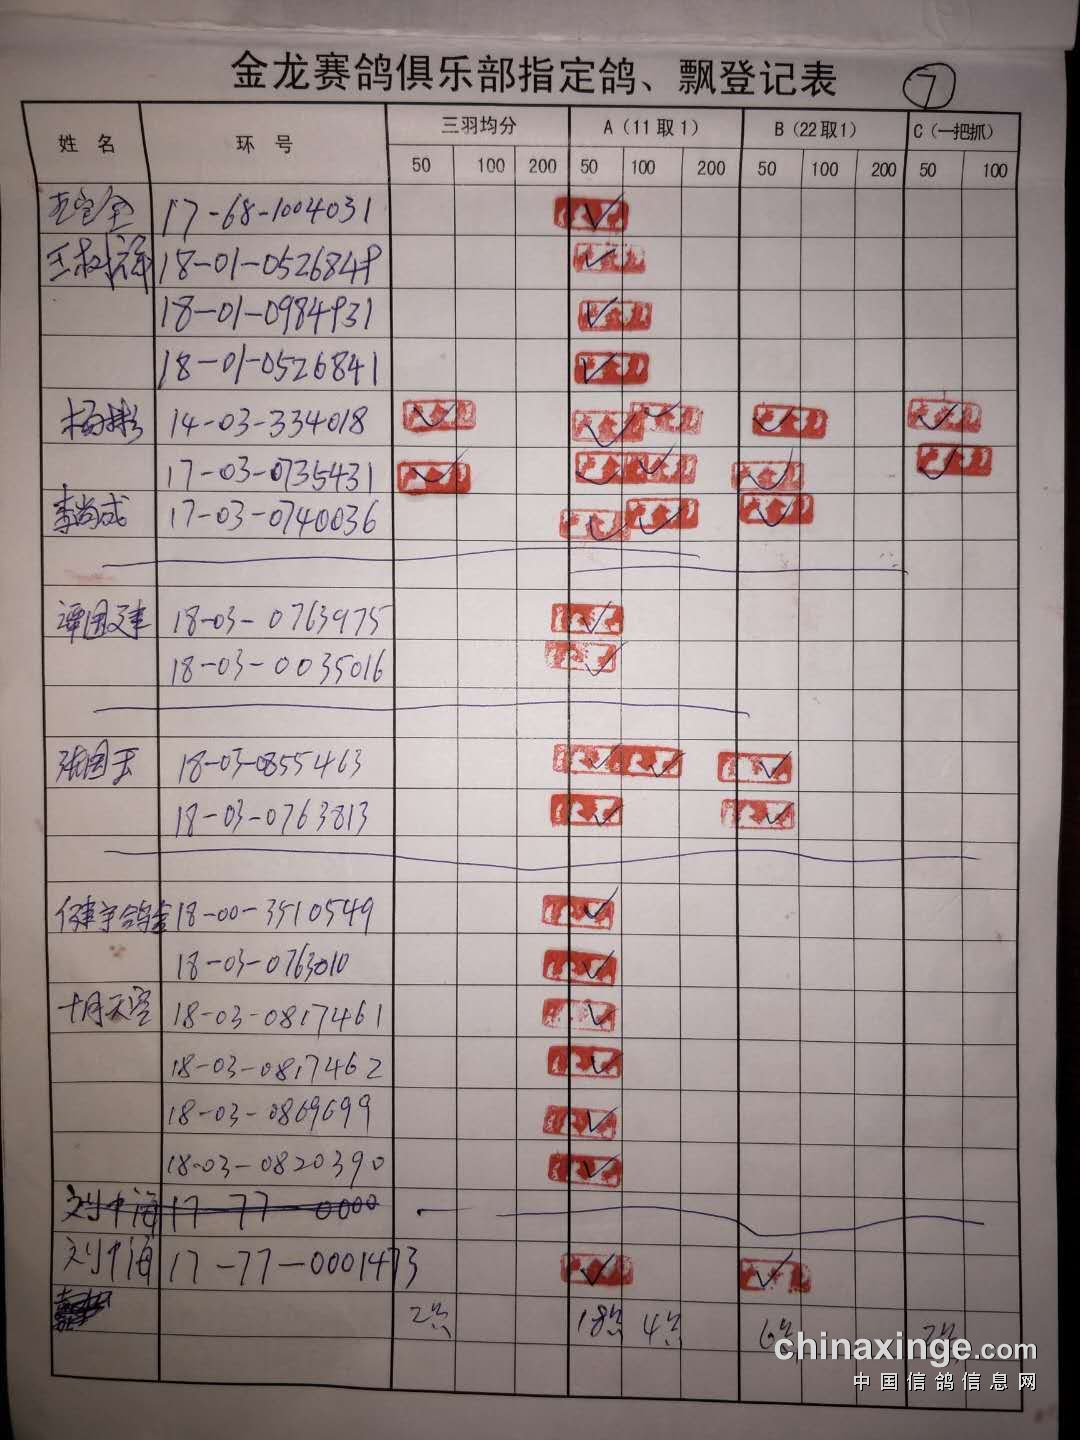 金龙赛鸽俱乐部指定鸽、飘登记表 7
姓 名 环 号 三羽均分 A（11取1） B（22取1） C（一把抓）
50 100 200 50 100 200 50 100 200 50 100
17-68-1004031 ✓
王树滨 18-01-0526849 ✓
18-01-0984931 ✓
18-01-0526841 ✓
杨彬 14-03-334018 ✓ ✓ ✓ ✓ ✓
17-03-0735431 ✓ ✓ ✓ ✓ ✓
李尚成 17-03-0740036 ✓ ✓ ✓
谭国建 18-03-0763975 ✓
18-03-0035016 ✓
张国玉 18-03-0855463 ✓ ✓ ✓
18-03-0763813 ✓ ✓
建宇鸽舍 18-00-3510549 ✓
18-03-0763010 ✓
十月天空 18-03-0817461 ✓
18-03-0817462 ✓
18-03-0869699 ✓
18-03-0820390 ✓
刘中海 17-77-0000
刘中海 17-77-0001473 ✓ ✓
2 18 4 6 2
chinaxinge.com
中国信鸽信息网